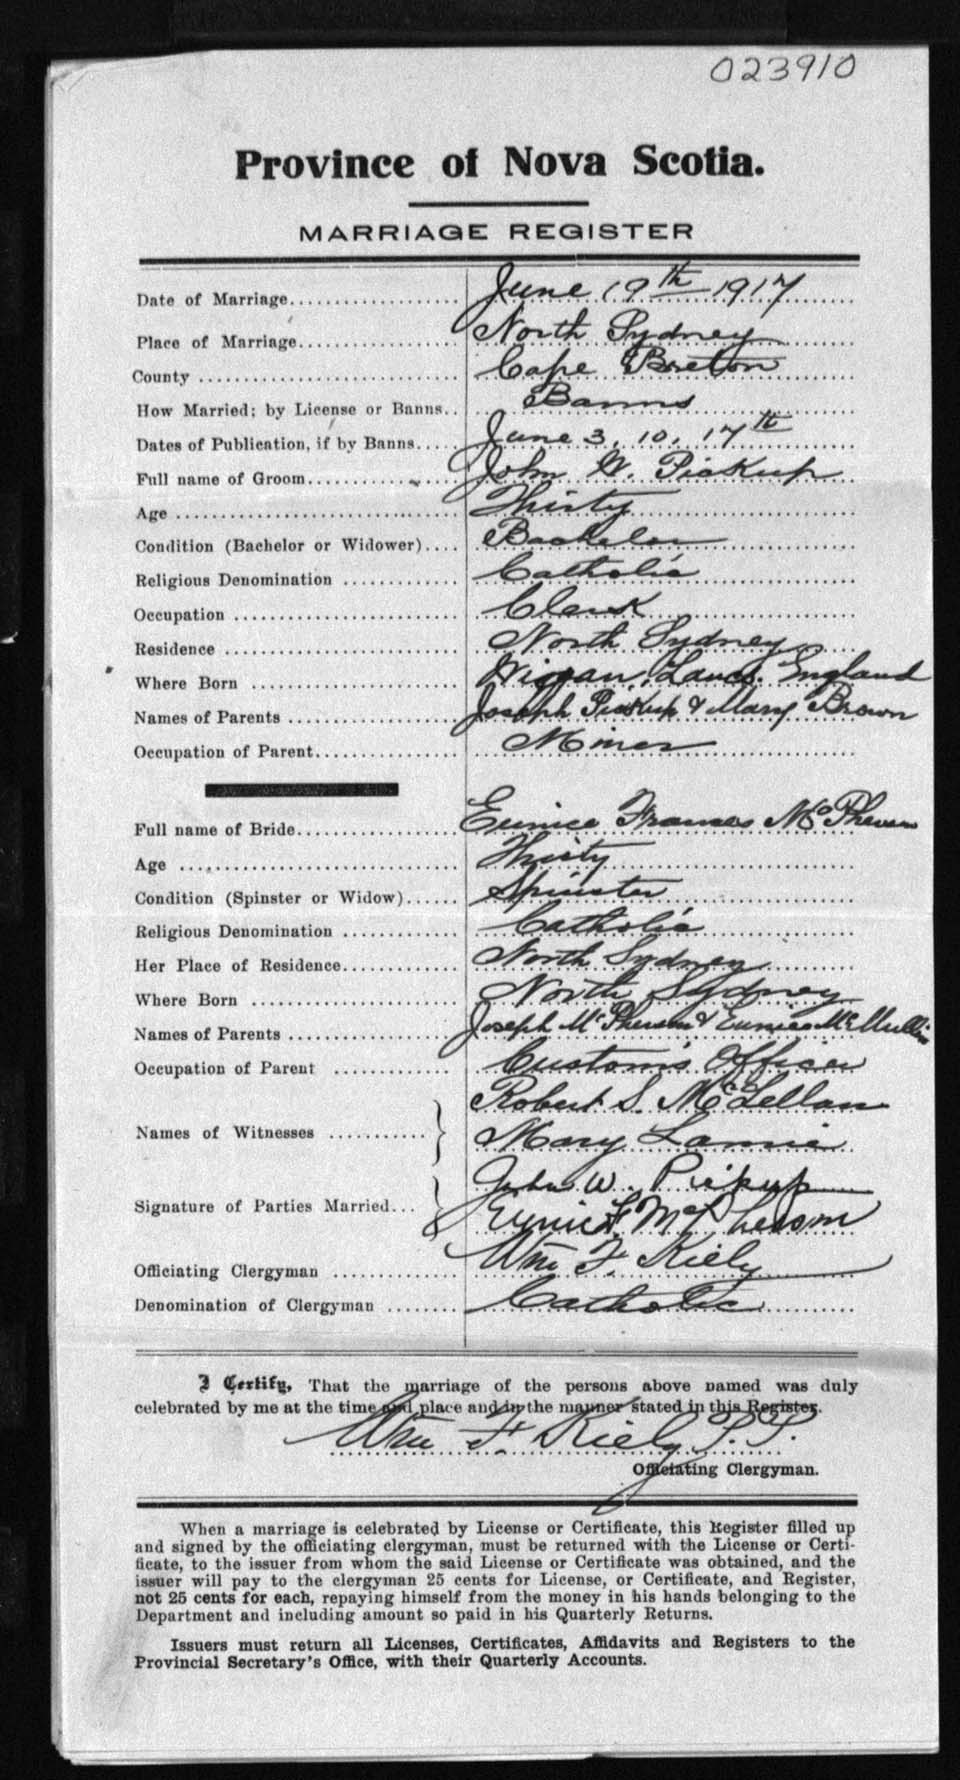 023910
Province of Nova Scotia.
MARRIAGE REGISTER
Date of Marriage.................... June 19th 1917
Place of Marriage.................. North Sydney
County ............................ Cape Breton
How Married; by License or Banns.. Banns
Dates of Publication, if by Banns..... June 3, 10, 17th
Full name of Groom................. John W. Pickup
Age ............................... Thirty
Condition (Bachelor or Widower).... Bachelor
Religious Denomination ............ Catholic
Occupation ........................ Clerk
Residence ......................... North Sydney
Where Born ...................... Wiggan, Lancs. England
Names of Parents .................. Joseph Pickup & Mary Brown
Occupation of Parent................ Miner
Full name of Bride.................. Eunice Frances McPherson
Age ............................... Thirty
Condition (Spinster or Widow)...... Spinster
Religious Denomination ............ Catholic
Her Place of Residence............. North Sydney
Where Born ...................... North Sydney
Names of Parents .................. Joseph McPherson & Eunice McMullin
Occupation of Parent ............. Customs Officer
Names of Witnesses ........... } Robert S. McLellan
Mary Lannie
Signature of Parties Married... { John W. Pickup
Eunice F. McPherson
Officiating Clergyman .............. Wm F. Kiely
Denomination of Clergyman ........ Catholic
I Certify, That the marriage of the persons above named was duly
celebrated by me at the time and place and in the manner stated in this Register.
Wm F. Kiely P.P.
Officiating Clergyman.
When a marriage is celebrated by License or Certificate, this Register filled up
and signed by the officiating clergyman, must be returned with the License or Certi-
ficate, to the issuer from whom the said License or Certificate was obtained, and the
issuer will pay to the clergyman 25 cents for License, or Certificate, and Register,
not 25 cents for each, repaying himself from the money in his hands belonging to the
Department and including amount so paid in his Quarterly Returns.
Issuers must return all Licenses, Certificates, Affidavits and Registers to the
Provincial Secretary's Office, with their Quarterly Accounts.